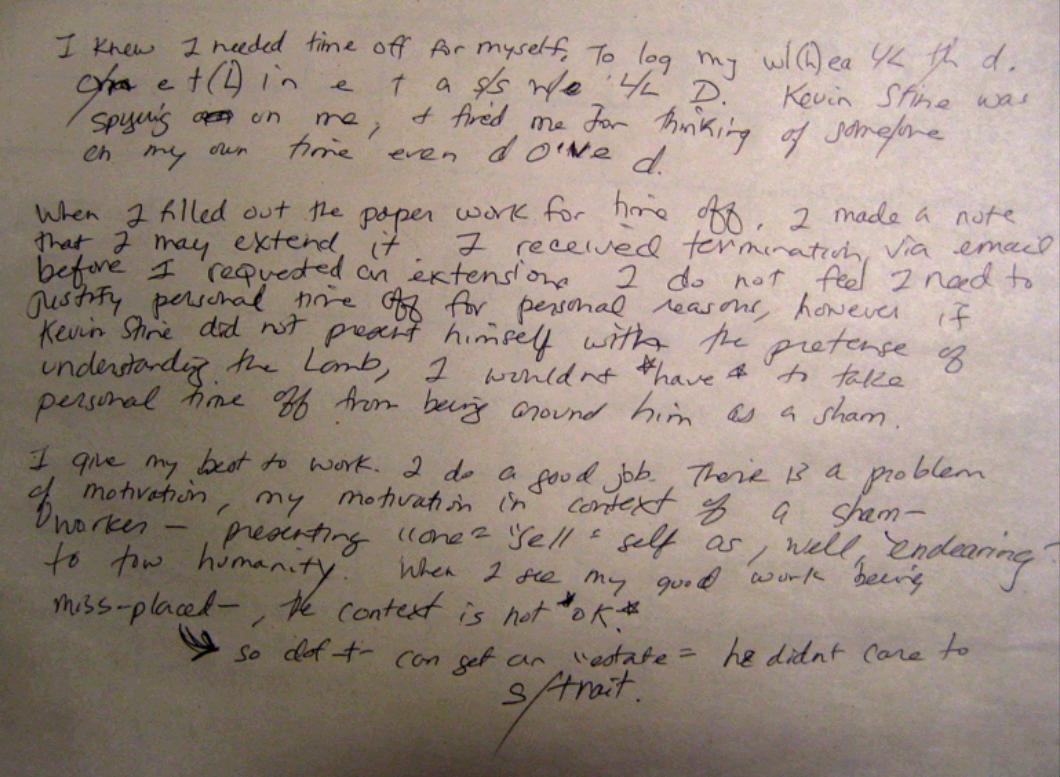 I knew I needed time off for myself. To log my w/(h)ea th d.
e t(L) in e t a s/s n/e D. Kevin Stine was
spying on me, & fired me for thinking of someone
on my own time even d d.
When I filled out the paper work for time off, I made a note
that I may extend it I received termination via email
before I requested an extension I do not feel I need to
justify personal time off for personal reasons, however if
Kevin Stine did not present himself with the pretense of
understanding the Lamb, I wouldnt *have* to take
personal time off from being around him as a sham.
I give my best to work. I do a good job. There is a problem
of motivation, my motivation in context of a sham-
worker - presenting "one" "sell" self as, well, "endearing"
to humanity. When I see my good work being
miss-placed-, the context is not *ok*
so can get an "estate" he didnt care to
s/trait.